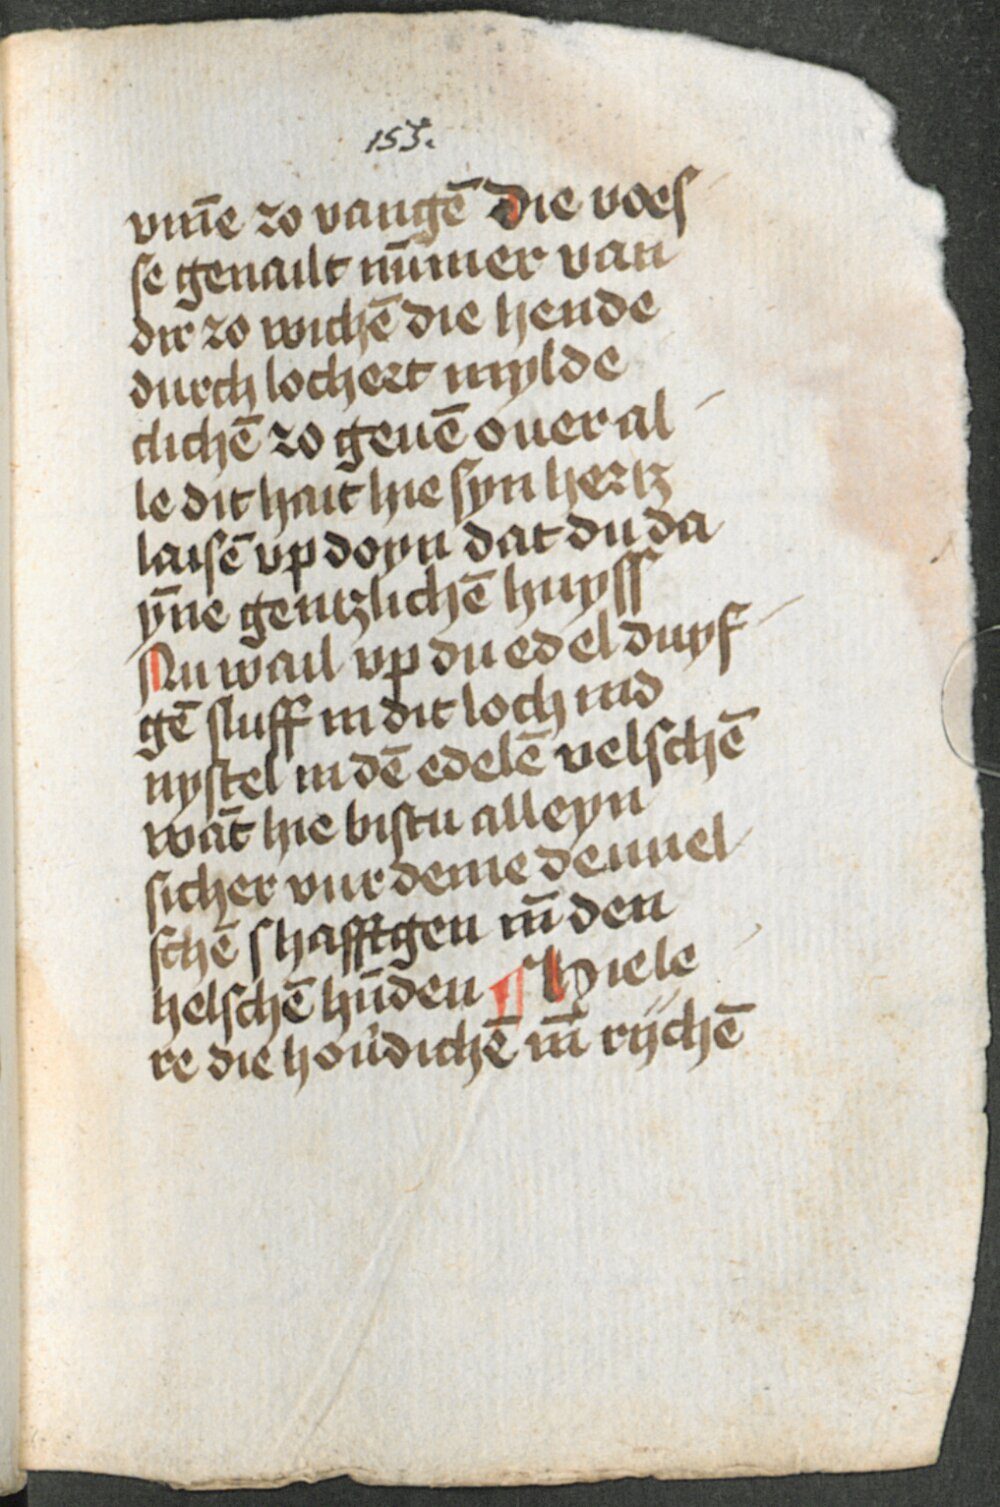 153.
vm̄e zo vangē Die voeſ
ſe genailt nūmer van
dir zo wichē die hende
durch lochert mylde
clichē zo geuē oueral
le dit hait hie ſyn hertz
laiſē vp doyn dat du da
ȳne gentzlichē huyſſ
Nu wail vp du edel duyf
gē ſluff in dit loch ind
nyſtel in dē edelē velſchē
wāt hie biſtu alleyn
ſicher vur deme deuuel
ſchē ſhafftgen vn̄ den
helſchē hūden ¶ Hie le
re die hoůdichē vn̄ rijchē